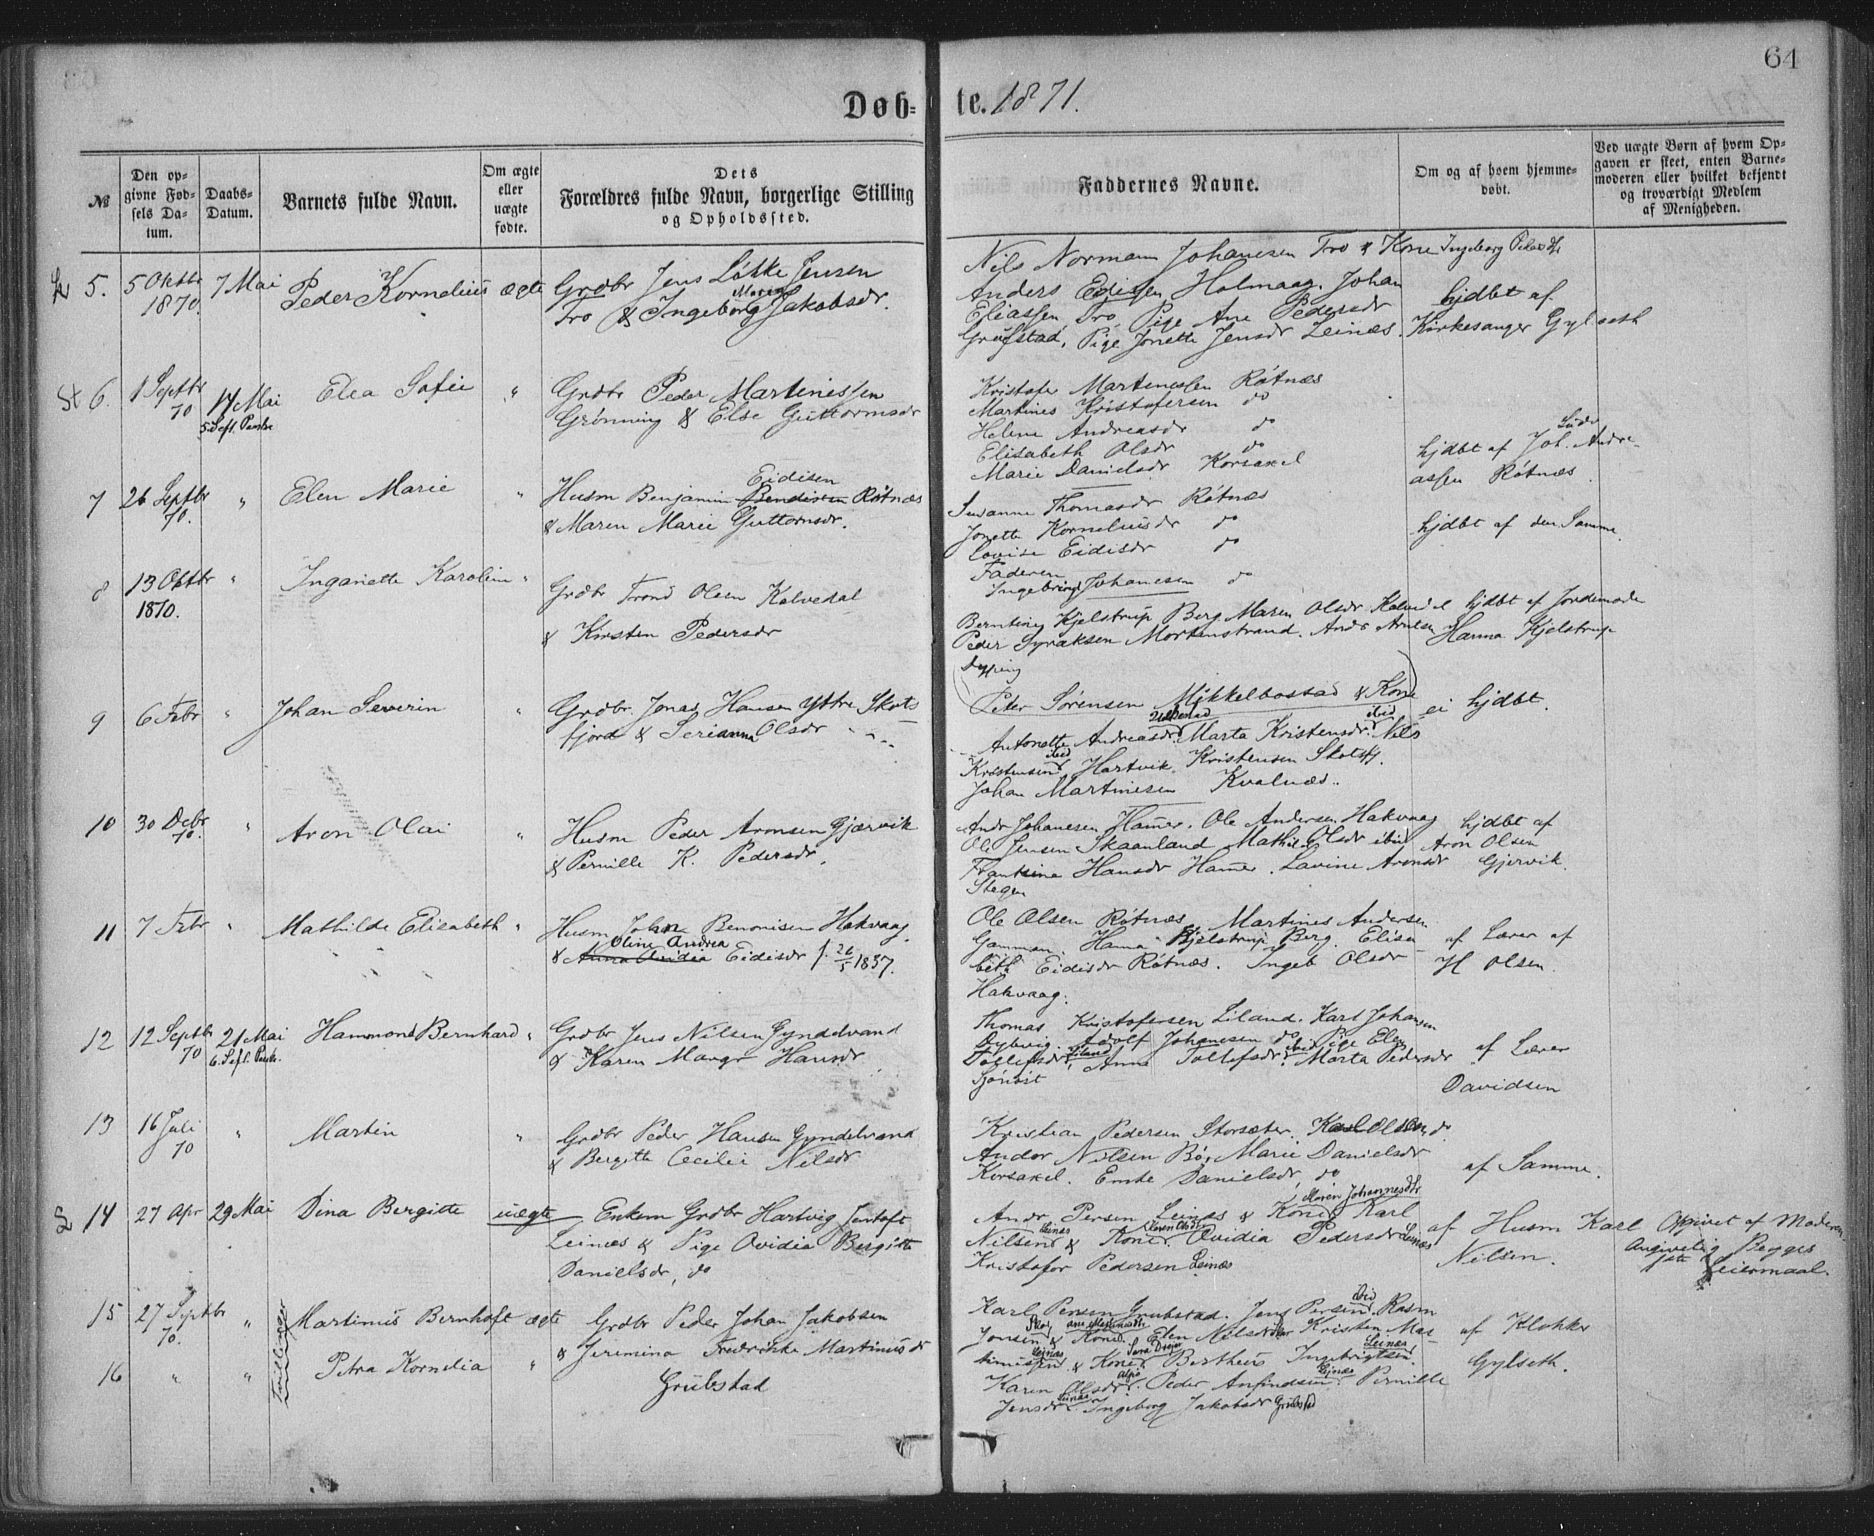 64
Døb- te. 1871.
№
Den opgivne Fødsels Datum.
Daabs-Datum.
Barnets fulde Navn.
Om ægte eller uægte fødte.
Dets Forældres fulde Navn, borgerlige Stilling og Opholdssted.
Faddernes Navne.
Om og af hvem hjemmedøbt.
Ved uægte Børn af hvem Opgaven er skeet, enten Barnemoderen eller hvilket bekjendt og troværdigt Medlem af Menigheden.
5. 5 Oktbr 1870. 7 Mai Peder Kornelius ægte
Grdbr Jens Løkke Jensen
Tro & Ingeborg Maria Jakobsdr.
Nils Normann Johanesen Tro & Kone Ingeborg
Anders Edisen Holmaag. Johan
Eliassen Tro. Pige Ane Pedersdr
Grufstad, Pige Jonette Jensdr Leinæs.
hjdbt af
Kirkesanger Gylseth
St 6. 1 Septbr 70 14 Mai Elea Sofie "
Grdbr Peder Martinissen
Grønning & Else Guttormsdr
Kristofer Martinessen Røtnæs
Martines Kristofersen do
Helene Andreasdr do
Elisabeth Olsdr do
Marie Danielsdr Korsaxel
hjdbt af Joh. Andre-
assen Røtnæs
7 26 Septbr 70. " Elen Marie "
Husm Benjamin Bendixen Eidisen Røtnæs
& Maren Marie Guttormsdr.
Susanne Thomasdr Røtnæs
Jonette Korneliusdr do
Lovise Eidisdr do
Faderen
Ingebrigt Johanesen do
hjdbt af den Samme
8 13 Oktbr 1870. " Inganette Karoline "
Grdbr Trond Olsen Kalvedal
& Kirsten Pedersdr
Berntine Kjelstrup Berg. Maren Olsdr Kalvedal
Peder Syraksen Mortenstrand. Andr Arntsen
Dypping
hjdbt af Jordemoder
Hanna Kjelstrup
9 6 Febr " Johan Severin "
Grdbr. Jonas Hansen Yttre Skots
fjord & Serianna Olsdr
Peter Sørensen Mikkelbostad & Kone
Antonette Andreasdr Marta Kristensdr ibid Nils
Kristensen ibid Hartvik Kristensen Skotsfj.
Johan Martinesen Kvalnæs.
ei hjdbt.
10 30 Debr 70. " Aron Olai "
Husm Peder Aronsen Gjærvik
& Pernille K. Pedersdr.
Andr Johanesen Hamer. Ole Andersen Hakvaag
Ole Jensen Skaanland Math. Olsdr ibid
Frantsina Hansdr Hamer. Lavine Aronsdr
Stegen
hjdbt af
Aron Olsen
Gjervik
11 7 Febr " Mathilde Elisabeth "
Husm Johan Benonisen Hakvaag.
& Anna Ovidia Oline Andrea Eidisdr f. 26/5 1837.
Ole Olsen Røtnæs, Martines Andersen
Gammon. Hanna Kjelstrup Berg. Elisa
beth Eidisdr Røtnæs. Ingeb Olsdr
Hakvaag.
af Lærer af
H Olsen.
12 12 Septbr 70 21 Mai Hammond Bernhard "
Grdbr Jens Nilsen Gyndelvand
& Karen Margr Hansdr
Thomas Kristofersen Liland. Karl Johansen
Dybvig. Adolf Johanesen do Pige Elen
Tollefsdr Liland, Anne Tollefsdr ibid Marta Pedersdr
Sjønvit
af Lærer
Davidsen
13 16 Juli 70 " Martin "
Grdbr Peder Hansen Gyndelvand
& Bergitte Cecilie Nilsdr
Kristian Pedersen Storsæter. Karl Olsen, do
Andor Nilsen Bø, Marie Danielsdr
Korsaxel. Emte Danielsdr, do
af Samme.
14 27 Apr 29 Mai Dina Bergitte uægte
Enkem Grdbr Hartvig Jentoft
Leinæs & Pige Ovidia Bergitte
Danielsdr, do
Andr Persen Leinæs & Kone Maren Johannesdr Karl
Nilsen Leinæs & Kone Karen Olsdr Ovidia Pedersdr Leinæs
Kristofer Pedersen Leinæs
af Husm Karl
Nilsen.
Opgivet af Moderen
Angivelig Begges
1ste Leiermaal.
15 27 Septbr 70. " Martinus Bernhoft ægte
Grdbr Peder Johan Jakobsen
& Jeremina Fredrikke Martinusdr
Grubstad
Tvillinger
16 " " Petra Kornelia "
Karl Persen Grubstad. Jens Persen ibid Rasm
Jonsen Skog & Kone Elen Nilsdr Kristen Mar-
tinissen Leinæs & Kone Sara Bertheus Ingebrigtsen Leinæs
Karen Olsdr Alpø Peder Anfindsen Leinæs Pernille
Jensdr Leinæs Ingeborg Jakobsdr Grubstad
af Klokker
Gylseth.